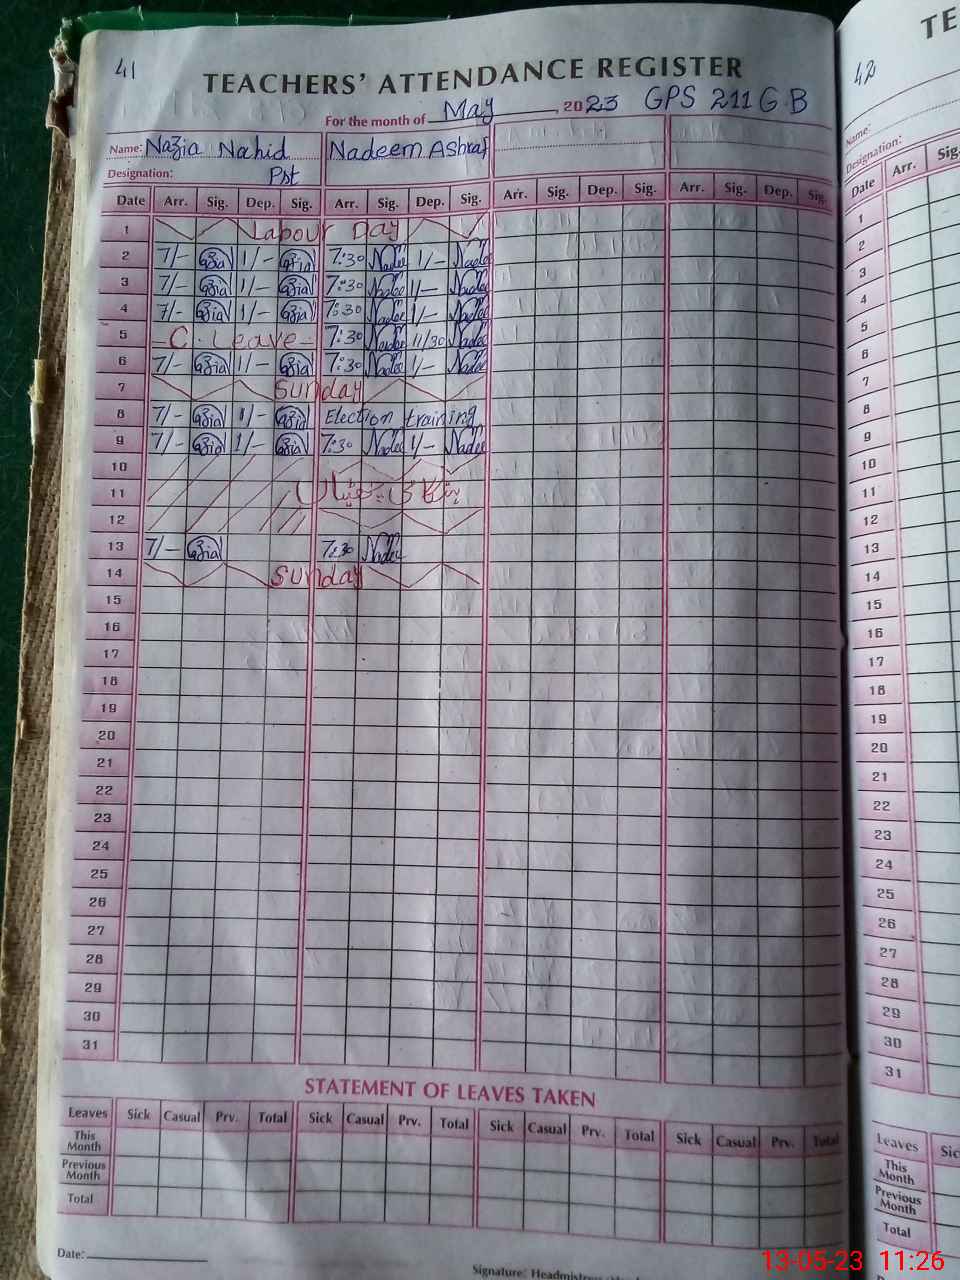 41
TEACHERS' ATTENDANCE REGISTER
For the month of May, 2023 GPS 211 G.B
Name: Nazia Nahid Nadeem Ashraf
Designation: Pst
Date Arr. Sig. Dep. Sig. Arr. Sig. Dep. Sig. Arr. Sig. Dep. Sig. Arr. Sig. Dep. Sig.
1 Labour Day
2 7/- 1/- 7:30 Nadee 1/- Nadee
3 7/- 1/- 7:30 Nadee 1/- Nadee
4 7/- 1/- 7:30 Nadee 1/- Nadee
5 C. Leave 7:30 Nadee 11/30 Nadee
6 7/- 1/- 7:30 Nadee 1/- Nadee
7 Sunday
8 7/- 1/- Election training
9 7/- 1/- 7:30 Nadee 1/- Nadee
10
11
12
13 7/- 7:30 Nadee
14 Sunday
15
16
17
18
19
20
21
22
23
24
25
26
27
28
29
30
31
STATEMENT OF LEAVES TAKEN
Leaves Sick Casual Prv. Total Sick Casual Prv. Total Sick Casual Prv. Total Sick Casual Prv. Total
This Month
Previous Month
Total
Date:
Signature: Headmistress
42
TE
Name:
Designation:
Date Arr. Sig.
1
2
3
4
5
6
7
8
9
10
11
12
13
14
15
16
17
18
19
20
21
22
23
24
25
26
27
28
29
30
31
Leaves Sic
This Month
Previous Month
Total
13-05-23 11:26